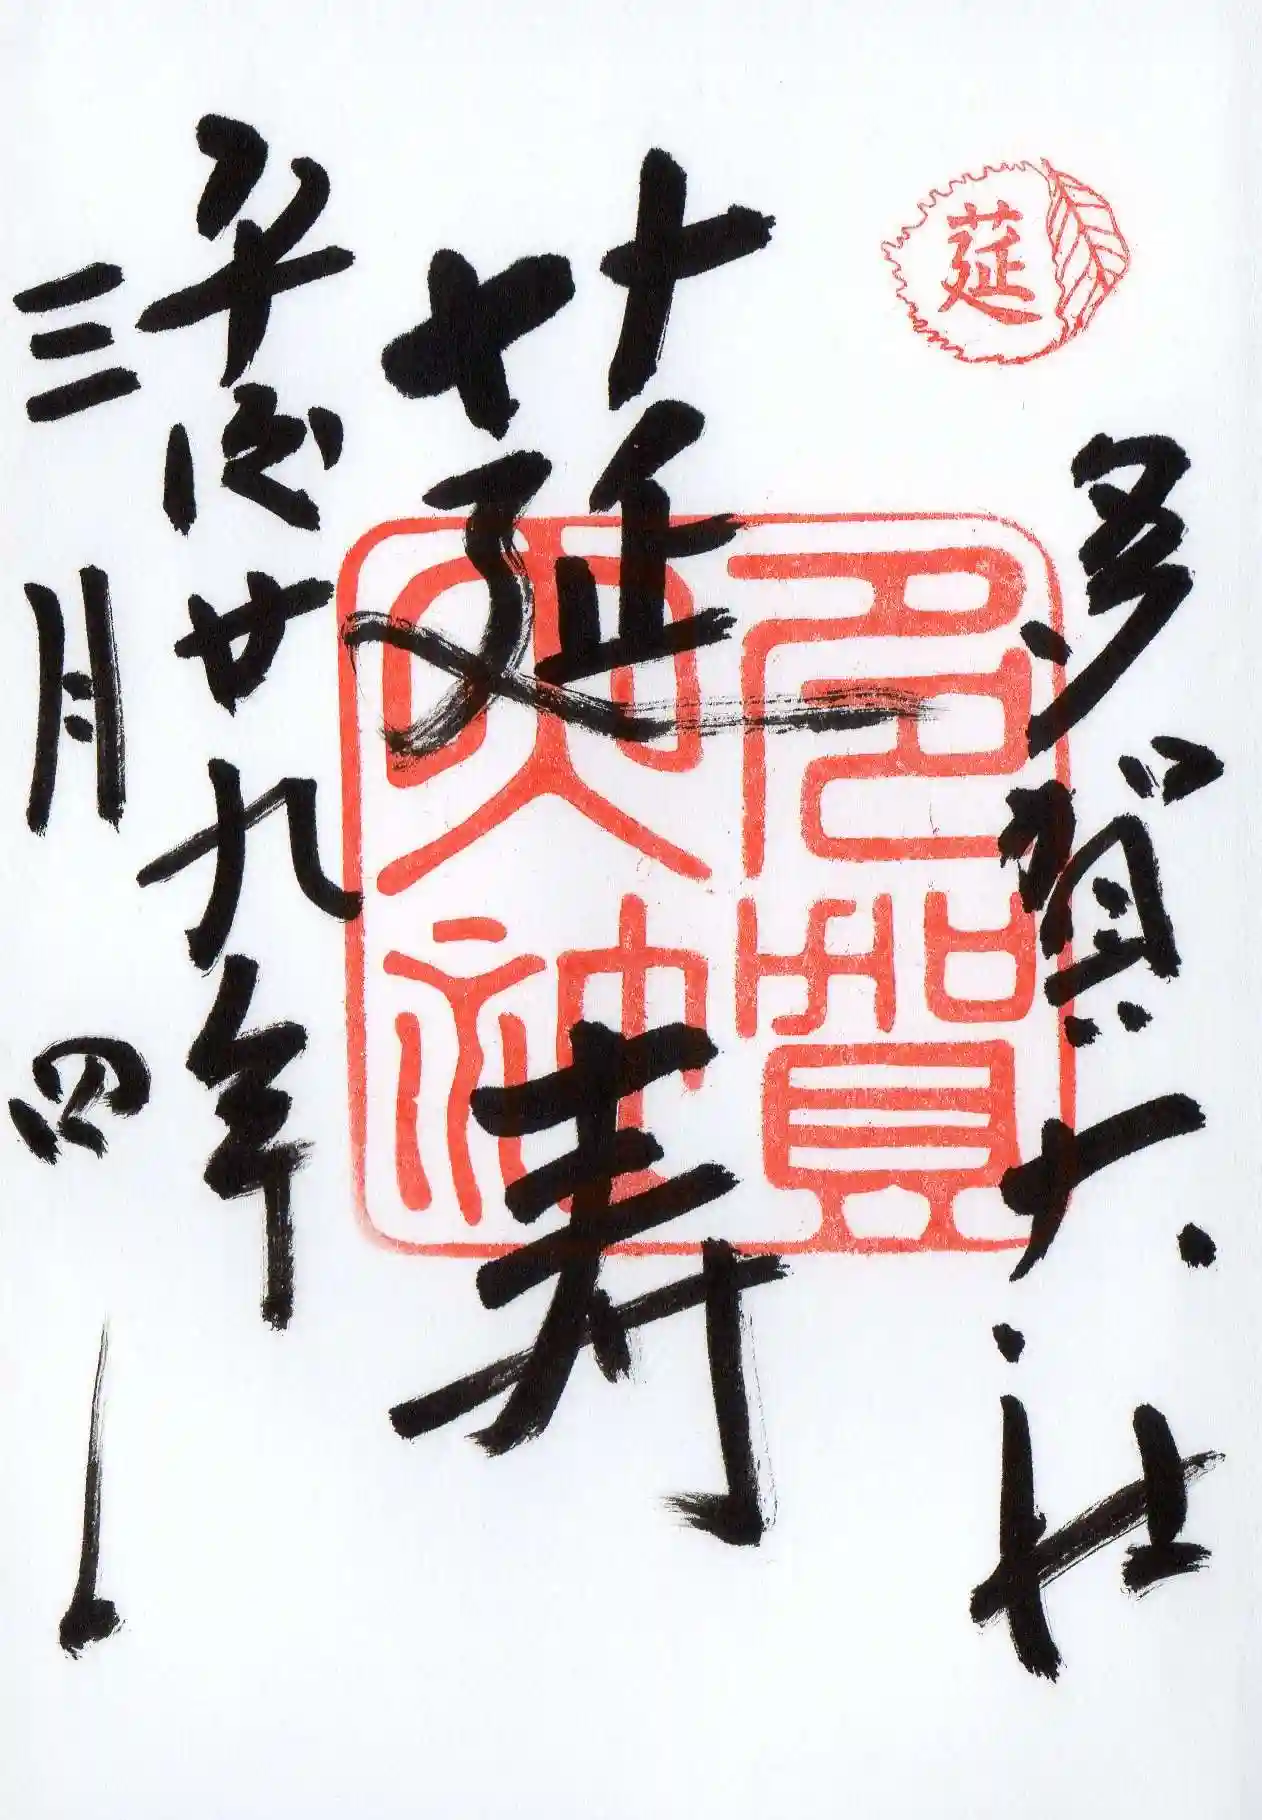 莚
多賀大社
多賀
大神
莚寿
平成廿九年
三月四日